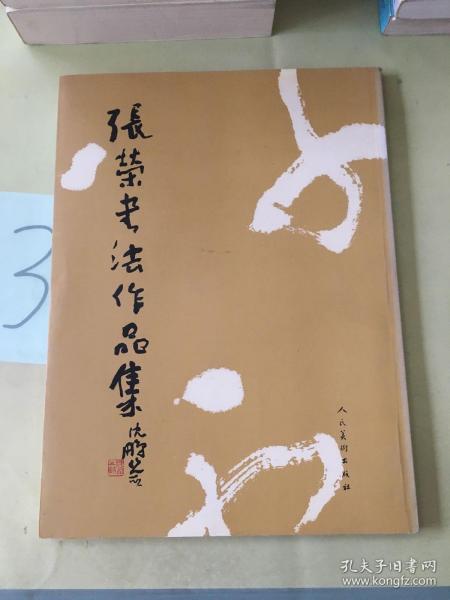 張荣书法作品集
沈鹏题
人民美術出版社
3
孔夫子旧书网
www.kongfz.com